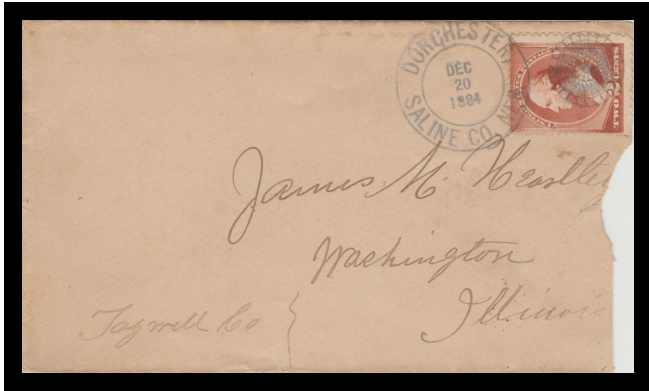 DORCHESTER
DEC
20
1884
SALINE CO. NEB
TWO 2 CENTS
James M.
Washington
Illinois
Tazwell Co